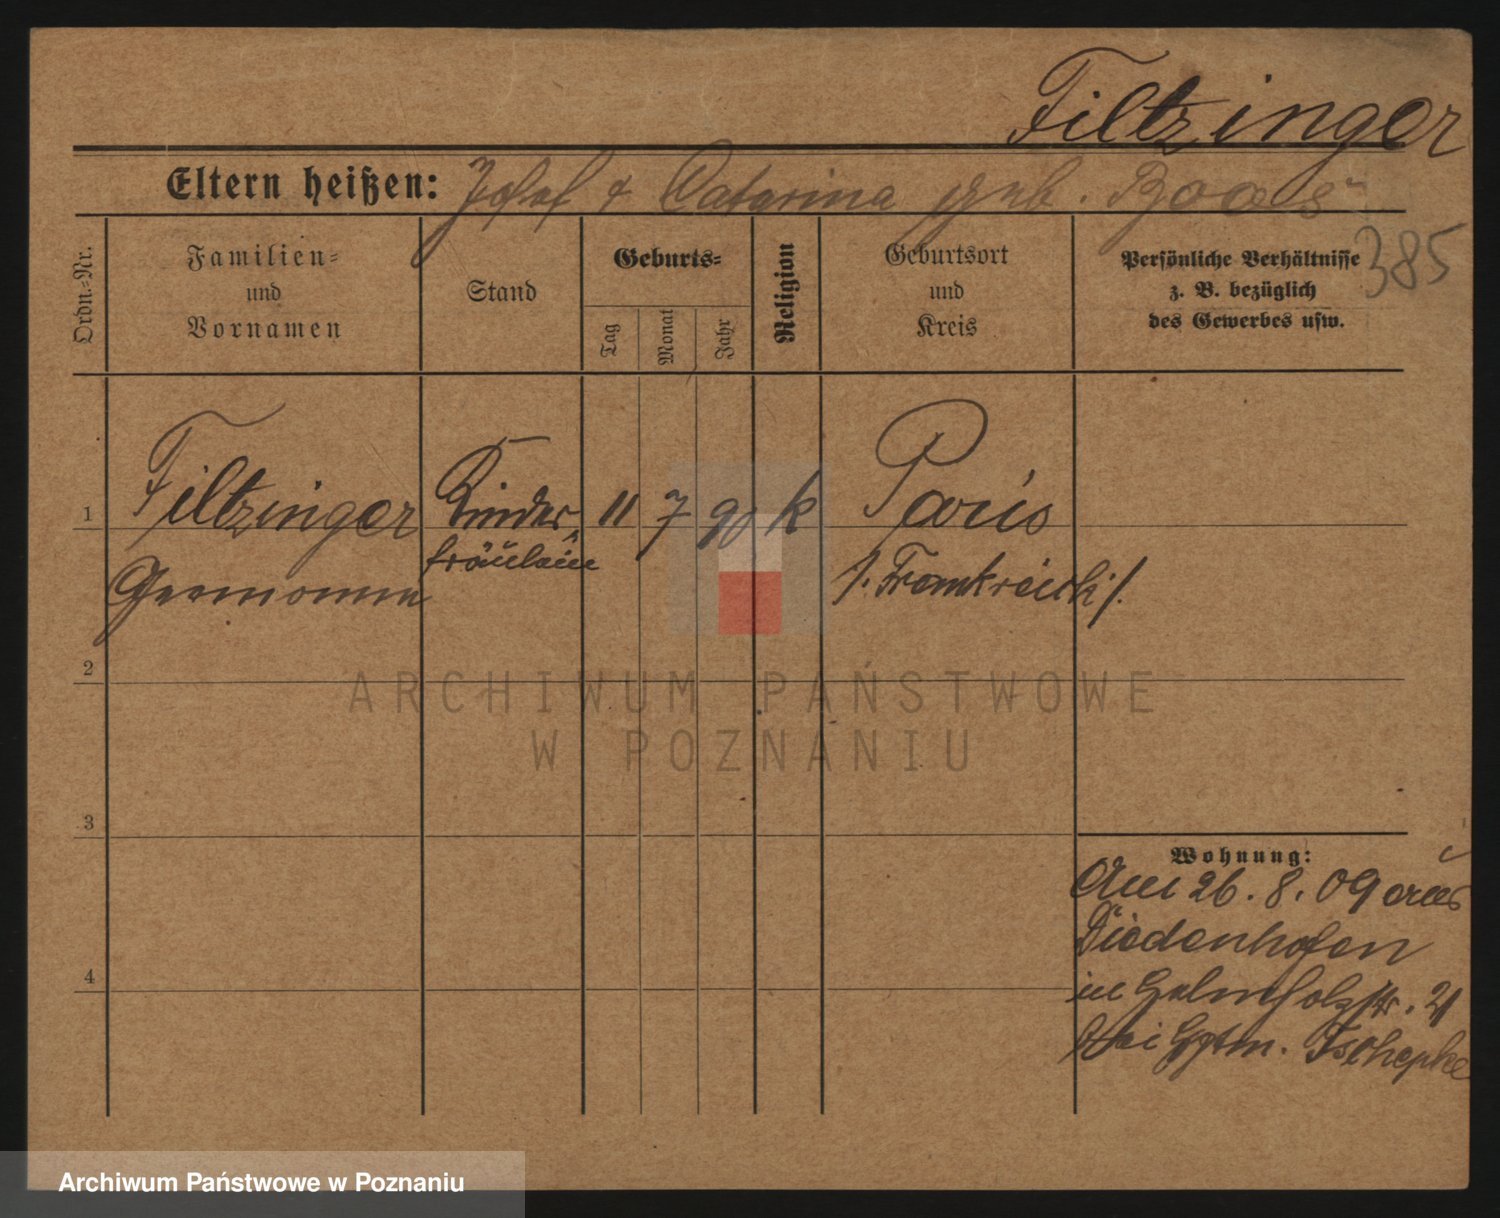 Filtzinger
Eltern heißen: Josef & Catarina geb. Boos
385
Ordn.-Nr.
Familien-
und
Vornamen
Stand
Geburts-
Tag
Monat
Jahr
Religion
Geburtsort
und
Kreis
Persönliche Verhältnisse
z. B. bezüglich
des Gewerbes usw.
1
Filtzinger
Germaine
Kinder
fräulein
11 7 90 k
Paris
/. Frankreich /.
2
ARCHIWUM PAŃSTWOWE
W POZNANIU
3
4
Wohnung:
Am 26. 8. 09 aus
Diedenhofen
in Helmholzstr. 21
bei Hptm. Tschepke
Archiwum Państwowe w Poznaniu